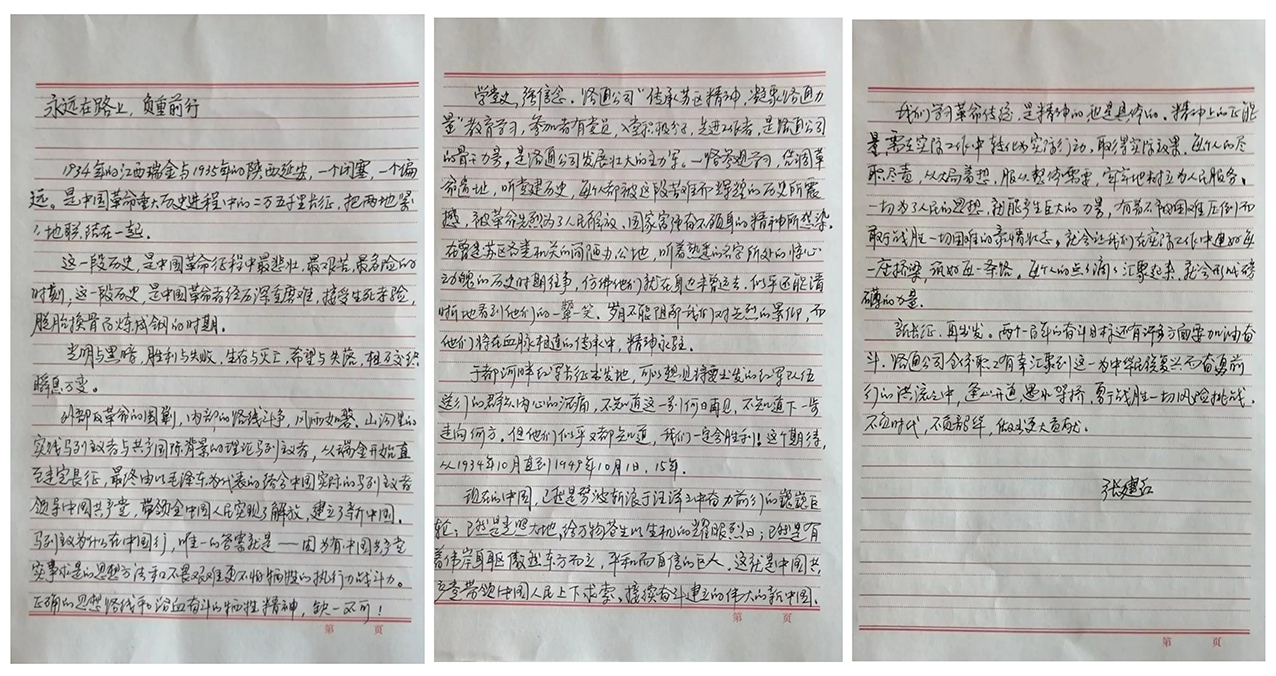 永远在路上，负重前行
1934年的江西瑞金与1935年的陕西延安，一个闭塞，一个偏
远。是中国革命重大历史进程中的二万五千里长征，把两地紧
紧地联结在一起。
这一段历史，是中国革命征程中最悲壮、最艰苦、最危险的
时刻，这一段历史，是中国革命者经历深重磨难，接受生死考验，
脱胎换骨百炼成钢的时期。
光明与黑暗，胜利与失败，生存与灭亡，希望与失落，相互交织
瞬息万变。
外部反革命的围剿，内部的路线斗争，风雨如磐。山沟里的
实践马列主义者与共产国际背景的理论马列主义者，从瑞金开始直
至走完长征，最终由以毛泽东为代表的结合中国实际的马列主义者
领导中国共产党，带领全中国人民实现了解放，建立了新中国。
马列主义为什么在中国行，唯一的答案就是——因为有中国共产党
实事求是的思想方法和不畏艰难更不怕牺牲的执行力战斗力。
正确的思想路线和浴血奋斗的牺牲精神，缺一不可！
学党史，强信念。路通公司“传承苏区精神，凝聚路通力
量”教育学习，参加者有党员，入党积极分子，先进工作者，是路通公司
的骨干力量。是路通公司发展壮大的主力军。一路参观学习，红都革
命旧址，听党建历史，每个人都被这段苦难而辉煌的历史所震
撼，被革命先烈为了人民解放、国家富强奋不顾身的精神所感染。
在曾是苏区各类机关的简陋办公地，听着熟悉的名字所处的惊心
动魄的历史时期往事，仿佛他们就在身边未曾远去，似乎还能清
晰地看到他们的一颦一笑。岁月不能阻断我们对先烈的景仰，而
他们将在血脉相连的传承中，精神永驻。
于都河畔红军长征出发地，可以想见将要出发的红军队伍
送行的群众内心的沉痛，不知道这一别何日再见，不知道下一步
走向何方。但他们似乎又都知道，我们一定会胜利！这个期待，
从1934年10月直到1949年10月1日，15年。
现在的中国，已然是劈波斩浪于汪洋之中奋力前行的巍巍巨
轮；已然是光照大地，给万物苍生以生机的耀眼烈日；已然是有
着伟岸身躯傲然东方而立，平和而自信的巨人。这就是中国共
产党带领中国人民上下求索、接续奋斗建立的伟大的新中国。
我们学习革命传统，是精神的也是具体的。精神上的正能
量，需在实际工作中转化为实际行动，取得实际效果。每个人的尽
职尽责，从大局着想，服从整体需要，牢牢地树立为人民服务、
一切为了人民的思想，就能产生巨大的力量，有着不被困难压倒而
敢于战胜一切困难的豪情壮志。就会让我们在实际工作中建好每
一座桥梁，筑好每一条路。每个人的点点滴滴汇聚起来，就会形成磅
礴的力量。
新长征，再出发。两个百年的奋斗目标还有许多方面要加油奋
斗。路通公司全体职工有幸汇聚到这一为中华民族复兴而奋勇前
行的洪流之中，逢山开道遇水架桥，勇于战胜一切风险挑战，
不负时代，不负韶华，做出更大贡献。
张建红
第 页
第 页
第 页